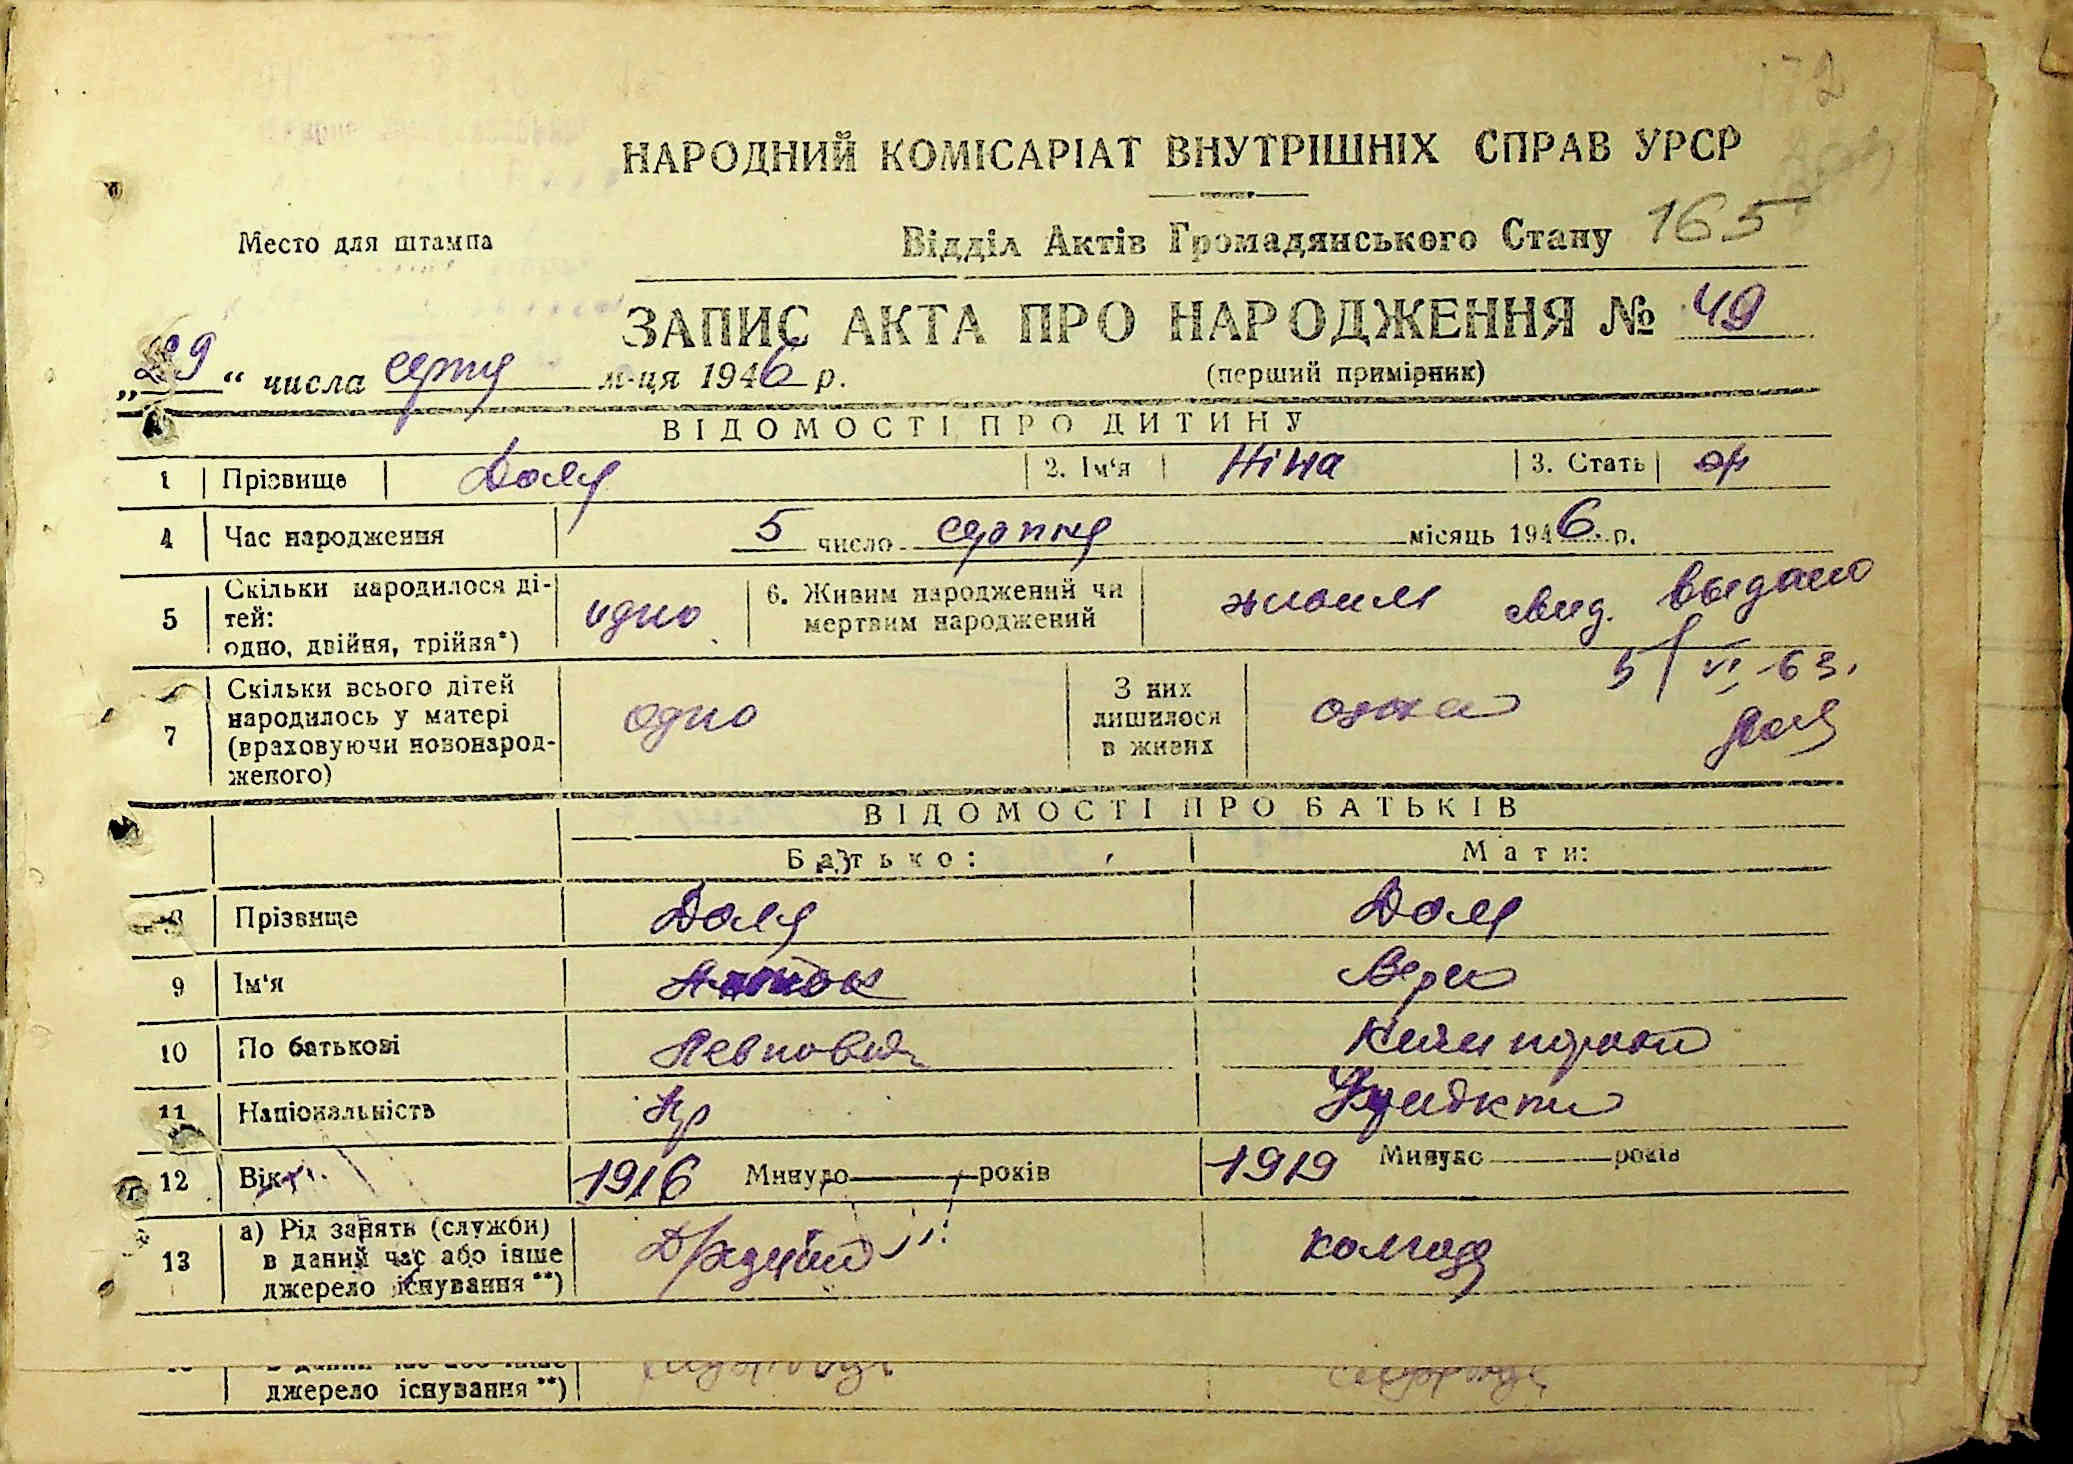 172
НАРОДНИЙ КОМІСАРІАТ ВНУТРІШНІХ СПРАВ УРСР
Место для штампа
Відділ Актів Громадянського Стану 165
ЗАПИС АКТА ПРО НАРОДЖЕННЯ № 49
„29“ числа серпня м-ця 1946 р.
(перший примірник)
ВІДОМОСТІ ПРО ДИТИНУ
1 Прізвище Доля 2. Ім‘я Ніна 3. Стать
4 Час народження 5 число серпня місяць 1946 р.
5 Скільки народилося ді-
тей:
одно, двійня, трійня*)
одно
6. Живим народжений чи
мертвим народжений
живим
свид. выдано
5/VI-63.
7 Скільки всього дітей
народилось у матері
(враховуючи новонарод-
женого)
одно
З них
лишилося
в живих
одна
ВІДОМОСТІ ПРО БАТЬКІВ
Батько: Мати:
8 Прізвище Доля Доля
9 Ім‘я Вера
10 По батькові
11 Національність Укр
12 Вік 1916 Минуло років 1919 Минуло років
13 а) Рід занять (служби)
в даний час або інше
джерело існування **)
колгосп
в даний час або інше
джерело існування **)